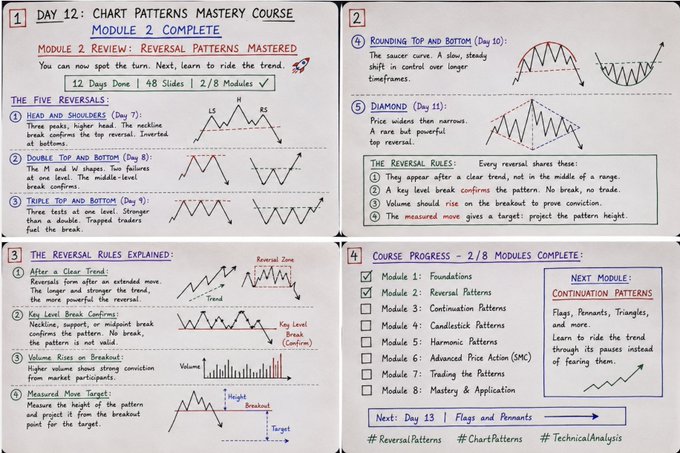 1
DAY 12: CHART PATTERNS MASTERY COURSE
MODULE 2 COMPLETE
MODULE 2 REVIEW: REVERSAL PATTERNS MASTERED
You can now spot the turn. Next, learn to ride the trend.
12 Days Done | 48 Slides | 2/8 Modules ✓
THE FIVE REVERSALS:
1 HEAD AND SHOULDERS (Day 7):
Three peaks, higher head. The neckline
break confirms the top reversal. Inverted
at bottoms.
LS
H
RS
2 DOUBLE TOP AND BOTTOM (Day 8):
The M and W shapes. Two failures
at one level. The middle-level
break confirms.
3 TRIPLE TOP AND BOTTOM (Day 9):
Three tests at one level. Stronger
than a double. Trapped traders
fuel the break.
2.
4 ROUNDING TOP AND BOTTOM (Day 10):
The saucer curve. A slow, steady
shift in control over longer
timeframes.
5 DIAMOND (Day 11):
Price widens then narrows.
A rare but powerful
top reversal.
THE REVERSAL RULES: Every reversal shares these:
1 They appear after a clear trend, not in the middle of a range.
2 A key level break confirms the pattern. No break, no trade.
3 Volume should rise on the breakout to prove conviction.
4 The measured move gives a target: project the pattern height.
3 THE REVERSAL RULES EXPLAINED:
1 After a Clear Trend:
Reversals form after an extended move.
The longer and stronger the trend,
the more powerful the reversal.
Trend
Reversal Zone
2 Key Level Break Confirms:
Neckline, support, or midpoint break
confirms the pattern. No break,
the pattern is not valid.
Key Level
Break
(Confirm)
3 Volume Rises on Breakout:
Higher volume shows strong conviction
from market participants.
Volume
4 Measured Move Target:
Measure the height of the pattern
and project it from the breakout
point for the target.
Height
Breakout
Target
4 COURSE PROGRESS – 2/8 MODULES COMPLETE:
Module 1: Foundations
Module 2: Reversal Patterns
Module 3: Continuation Patterns
Module 4: Candlestick Patterns
Module 5: Harmonic Patterns
Module 6: Advanced Price Action (SMC)
Module 7: Trading the Patterns
Module 8: Mastery & Application
NEXT MODULE:
CONTINUATION PATTERNS
Flags, Pennants, Triangles,
and more.
Learn to ride the trend
through its pauses instead
of fearing them.
Next: Day 13 | Flags and Pennants
#ReversalPatterns #ChartPatterns #TechnicalAnalysis